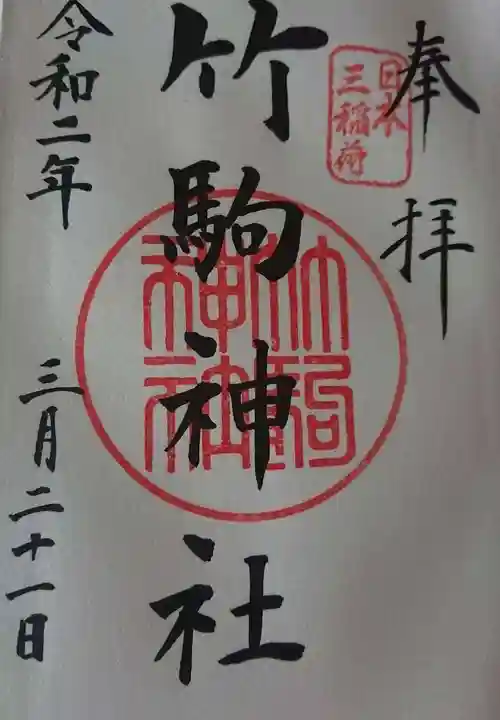 奉拝
日本
三稲荷
竹駒神社
竹駒
神社
令和二年 三月二十一日